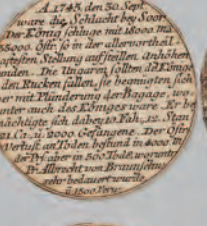 A. 1745. den 30. Sept.
ware die Schlacht bey Soor.
Der König schluge mit 18000. ma
35000. Östr. so in der allervortheil-
haftesten Stellung auf steilen Anhöhen
stunden. Die Ungaren sollten dem Könige
in den Rucken fallen, sie begnügten sich
aber mit Plünderung der Bagage, wo
runter auch des Königes ware. Er be
mächtigte sich dabey 10. Fah., 12. Stan
21. Ca. u. 2000 Gefangene. Der Östr
Verlust an Toden bestund in 4000. in
der Pr. aber in 500. Tode, worunter
Pr. Albrecht von Braunschw.
sehr bedauert wurde
u. 1500. Verw.